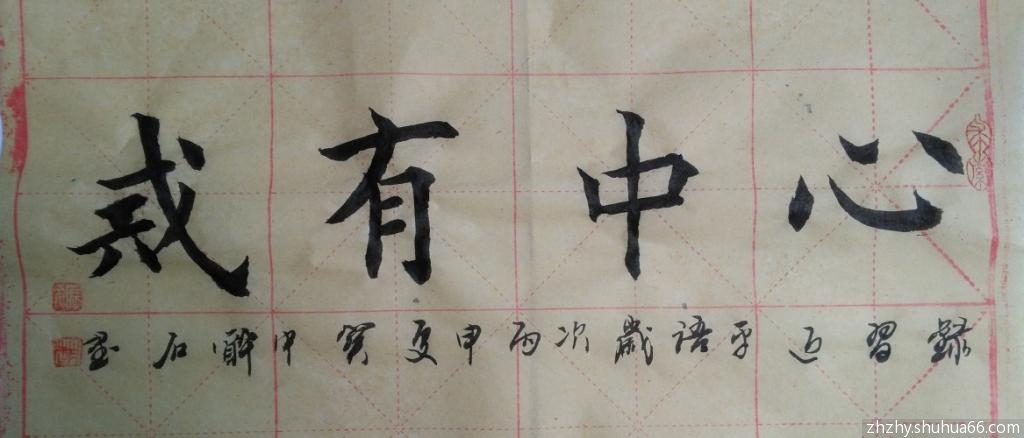 心中有戒
録習近平語歲次丙申夏寶中醉石書
zhzhy.shuhua66.com